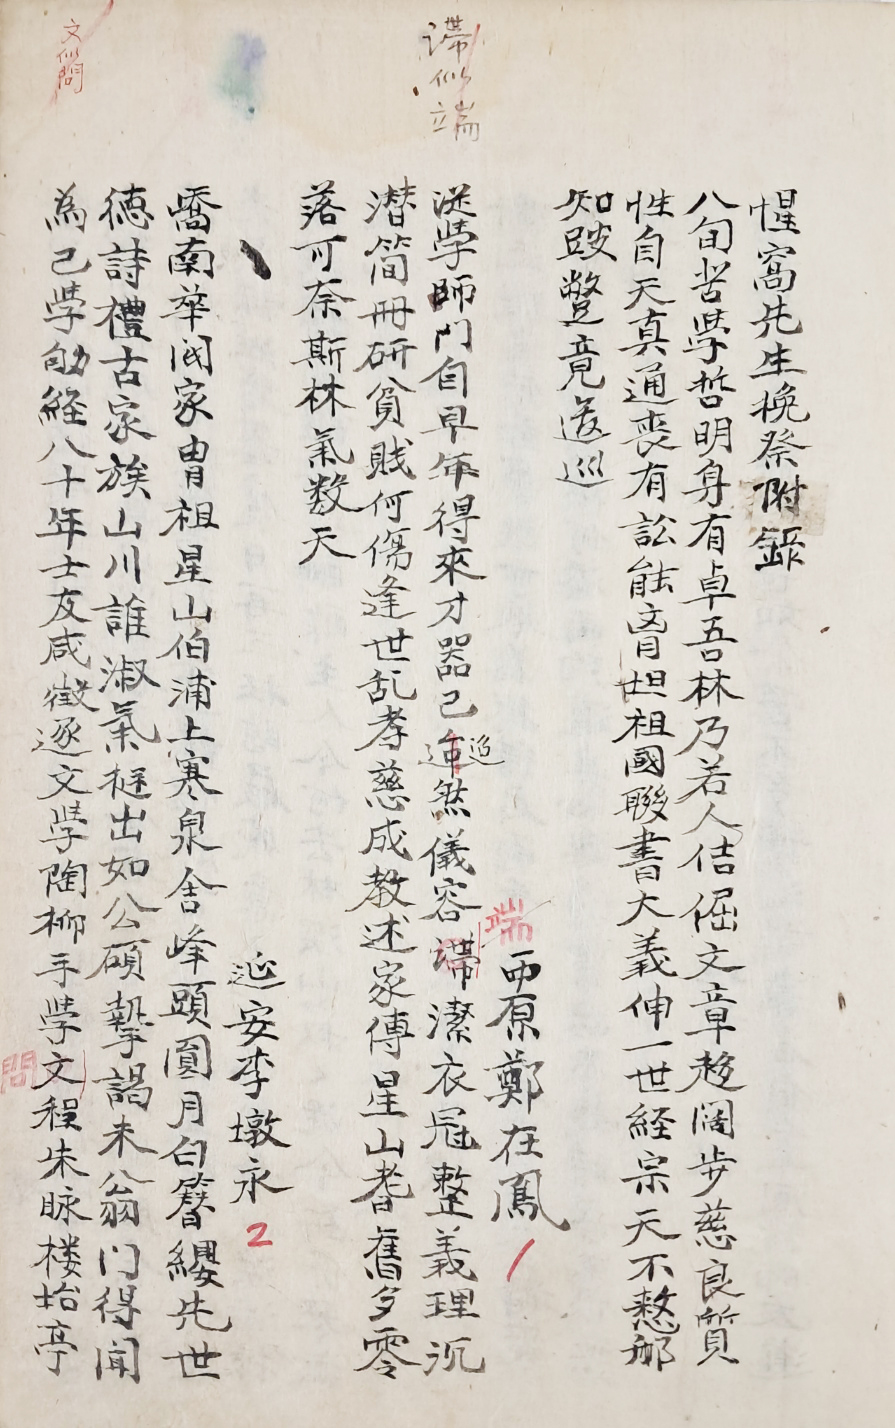 文似問
滯似端
惺窩先生挽祭附錄
八旬苦學哲明身有卓吾林乃若人佶倔文章趍闊步慈良質
性自天真通喪有訟能膏坦祖國聯書大義伸一世経宗天不憖郍
知跛蹩竟逡巡
端
西原鄭在鳳
1
従學師門自早年得來才器己迨迢然儀容滯潔衣冠整義理沉
潜简冊研貧賤何傷逢世乱孝慈成教述家傳星山耆舊多零
落可奈斯林氣数天
延安李墩永
2
喬南華閥家曺祖星山伯浦上寒泉舍峰頭圓月白簪纓先世
徳詩禮古家族山川誰淑氣挺出如公碩摯謁未翁門得聞
為己學劬経八十年士友咸徵逐文學陶柳手學文程朱眿楼坮亭
問